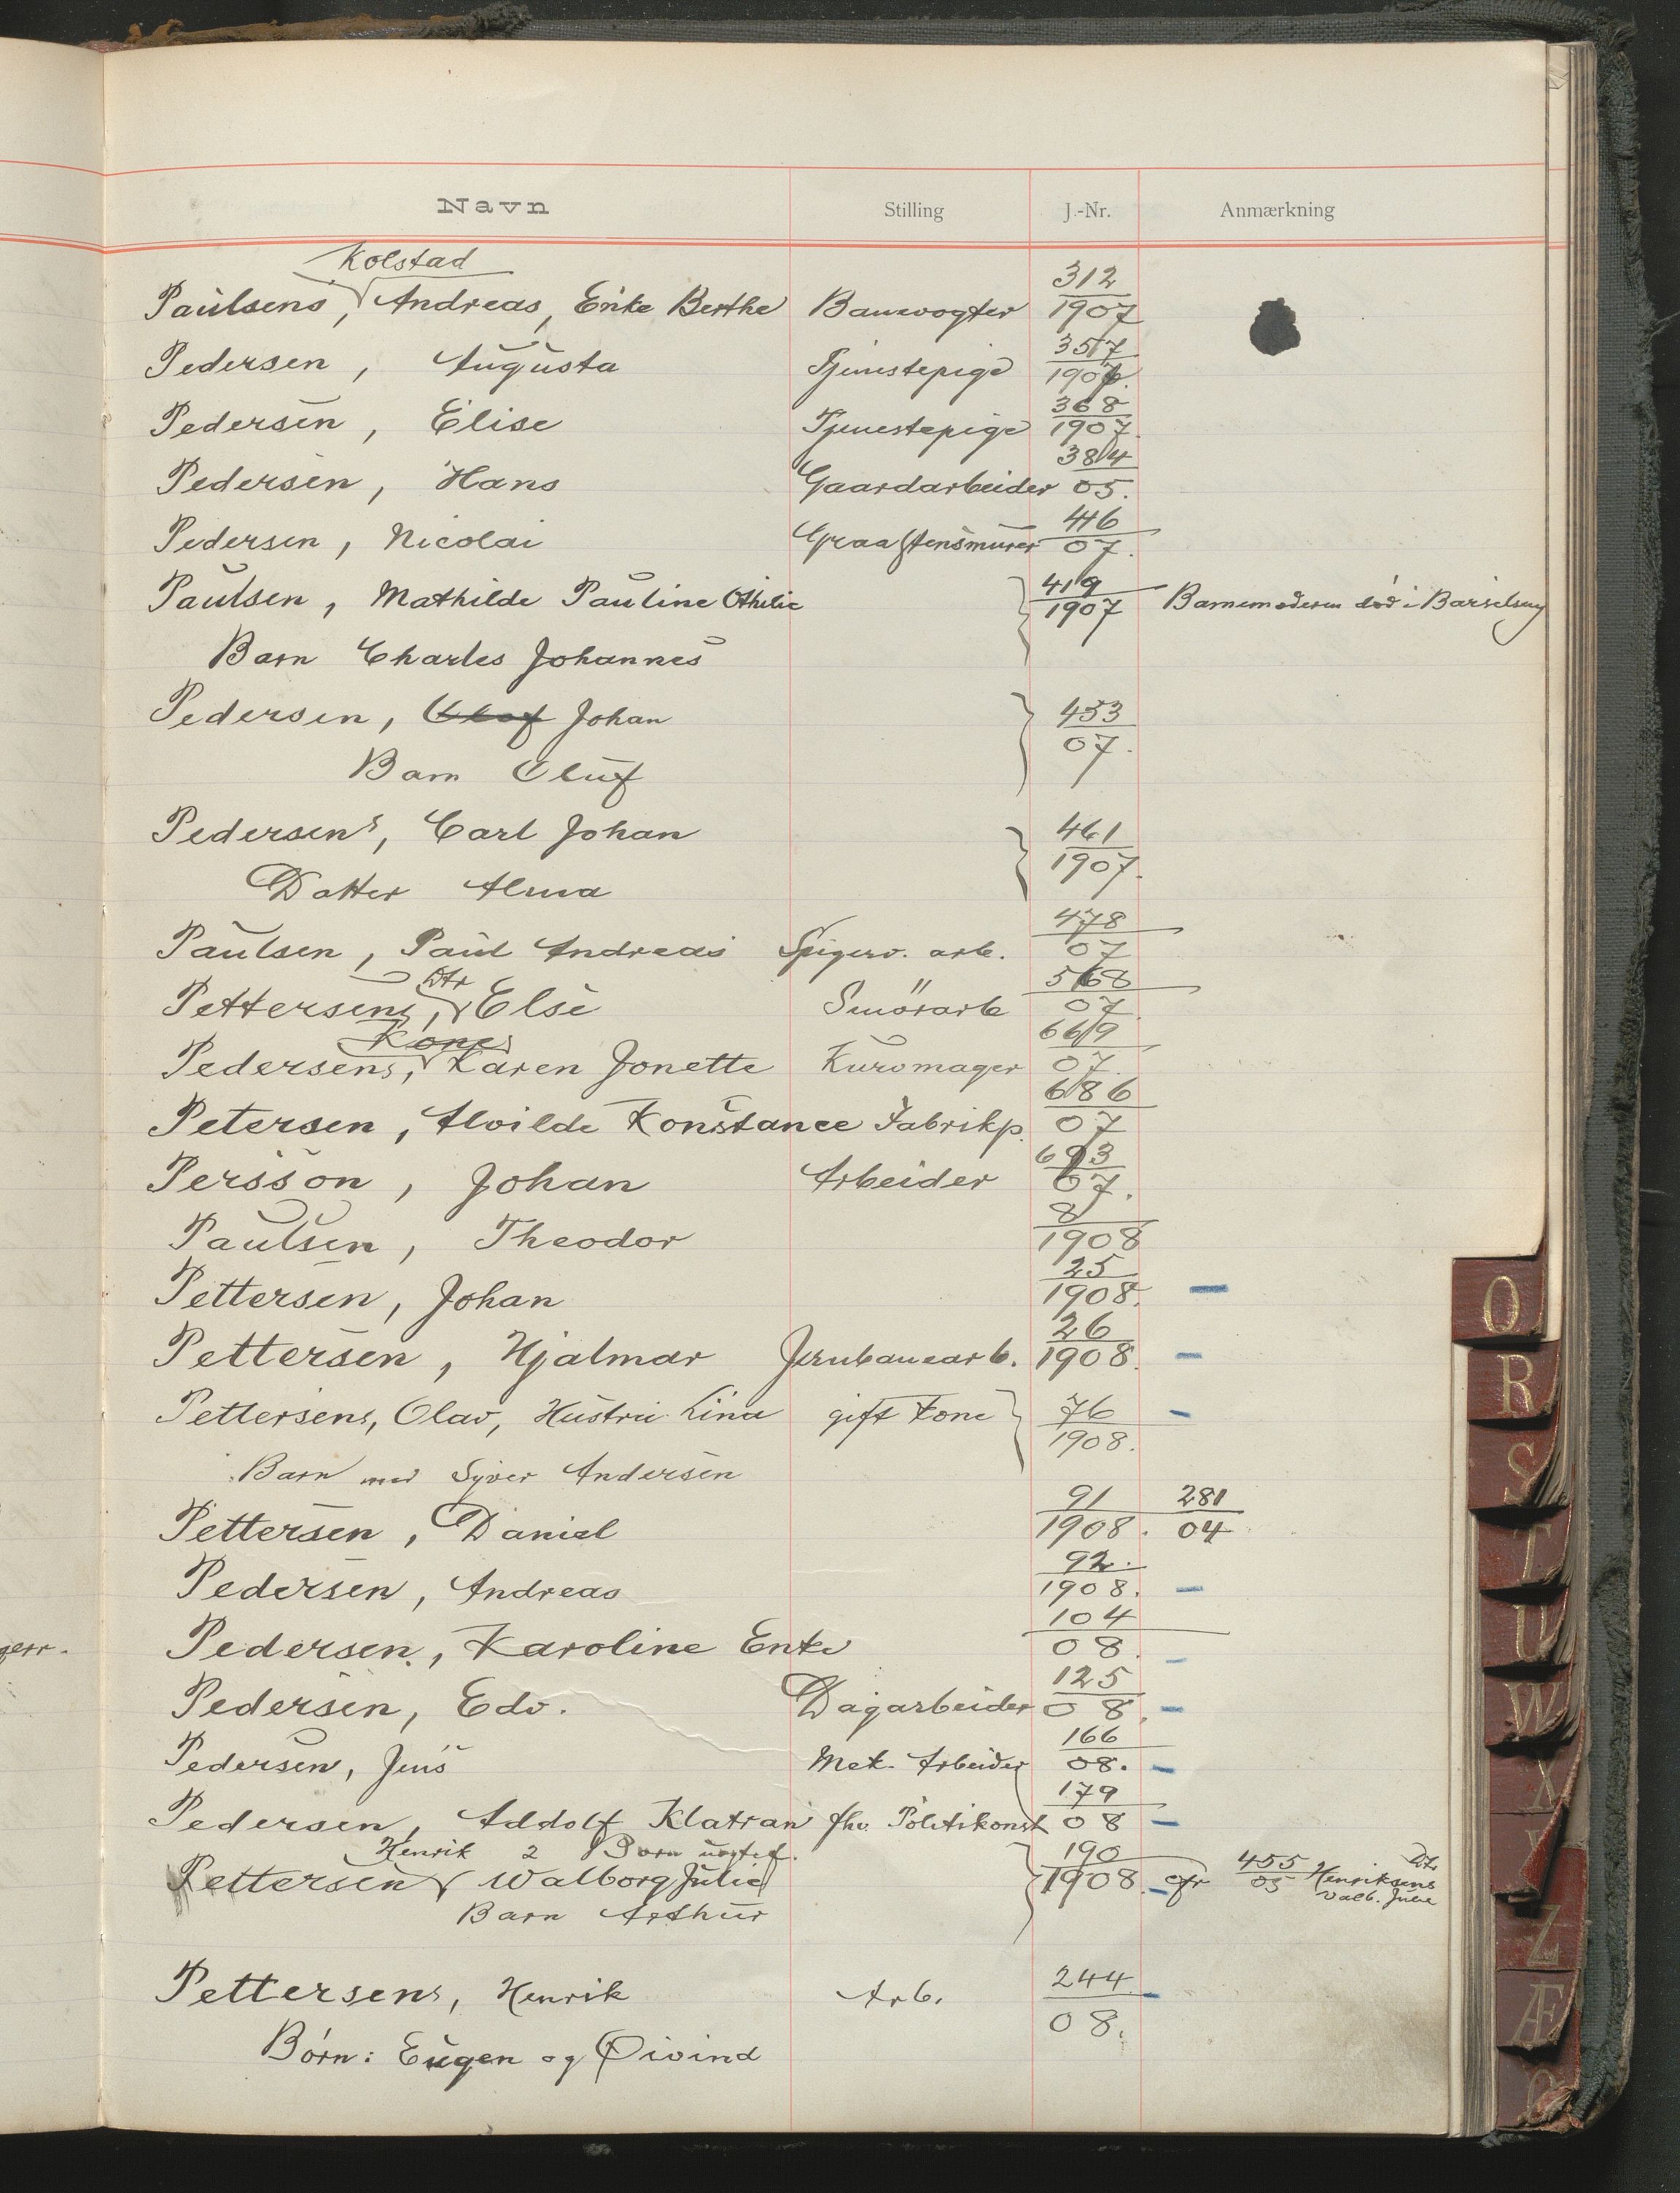 Navn Stilling J.-Nr. Anmærkning
Kolstad
Paulsens, Andreas, Enke Berthe Banevogter 312/1907
Pedersen, Augusta Tjenestepige 357/1907.
Pedersen, Elise Tjenestepige 368/1907.
Pedersen, Hans Gaardarbeider 384/05.
Pedersen, Nicolai Graastensmurer 416/07.
Paulsen, Mathilde Pauline Othilie 419/1907 Barnemoderen død i Barselseng
Barn Charles Johannes
Pedersen, Olaf Johan 453/07.
Barn Oluf
Pedersens, Carl Johan 461/1907.
Datter Alma
Paulsen, Paul Andreas Spigerv. arb. 478/07
Dtr
Pettersens, Else Smörarb 568/07
Kone
Pedersens, Karen Jonette Kurvmager 669/07.
Petersen, Alvilde Konstance Fabrikp. 686/07
Persson, Johan Arbeider 693/07.
Paulsen, Theodor 8/1908
Pettersen, Johan 25/1908. —
Pettersen, Hjalmar Jernbanearb. 26/1908. —
Pettersens, Olav, Hustru Lina gift Kone 76/1908. —
Barn med Syver Andersen
Pettersen, Daniel 91/1908. 281/04
Pedersen, Andreas 92./1908. —
Pedersen, Karoline Enke 104/08. —
gerr.
Pedersen, Edv. Dagarbeider 125/08. —
Pedersen, Jens Mek. Arbeider 166/08. —
Pedersen, Addolf Klatran fhv. Politikonst 179/08 —
Henrik 2 Børn uægtef.
Pettersen Walborg Julie 190/1908. cfr 455/05 Henriksens Dtr.
Valb. Julie
Barn Arthur
Pettersens, Henrik Arb. 244/08. —
Børn: Eugen og Øivind
O
R
S
T
U
W
X
Y
Z
Æ
Ø